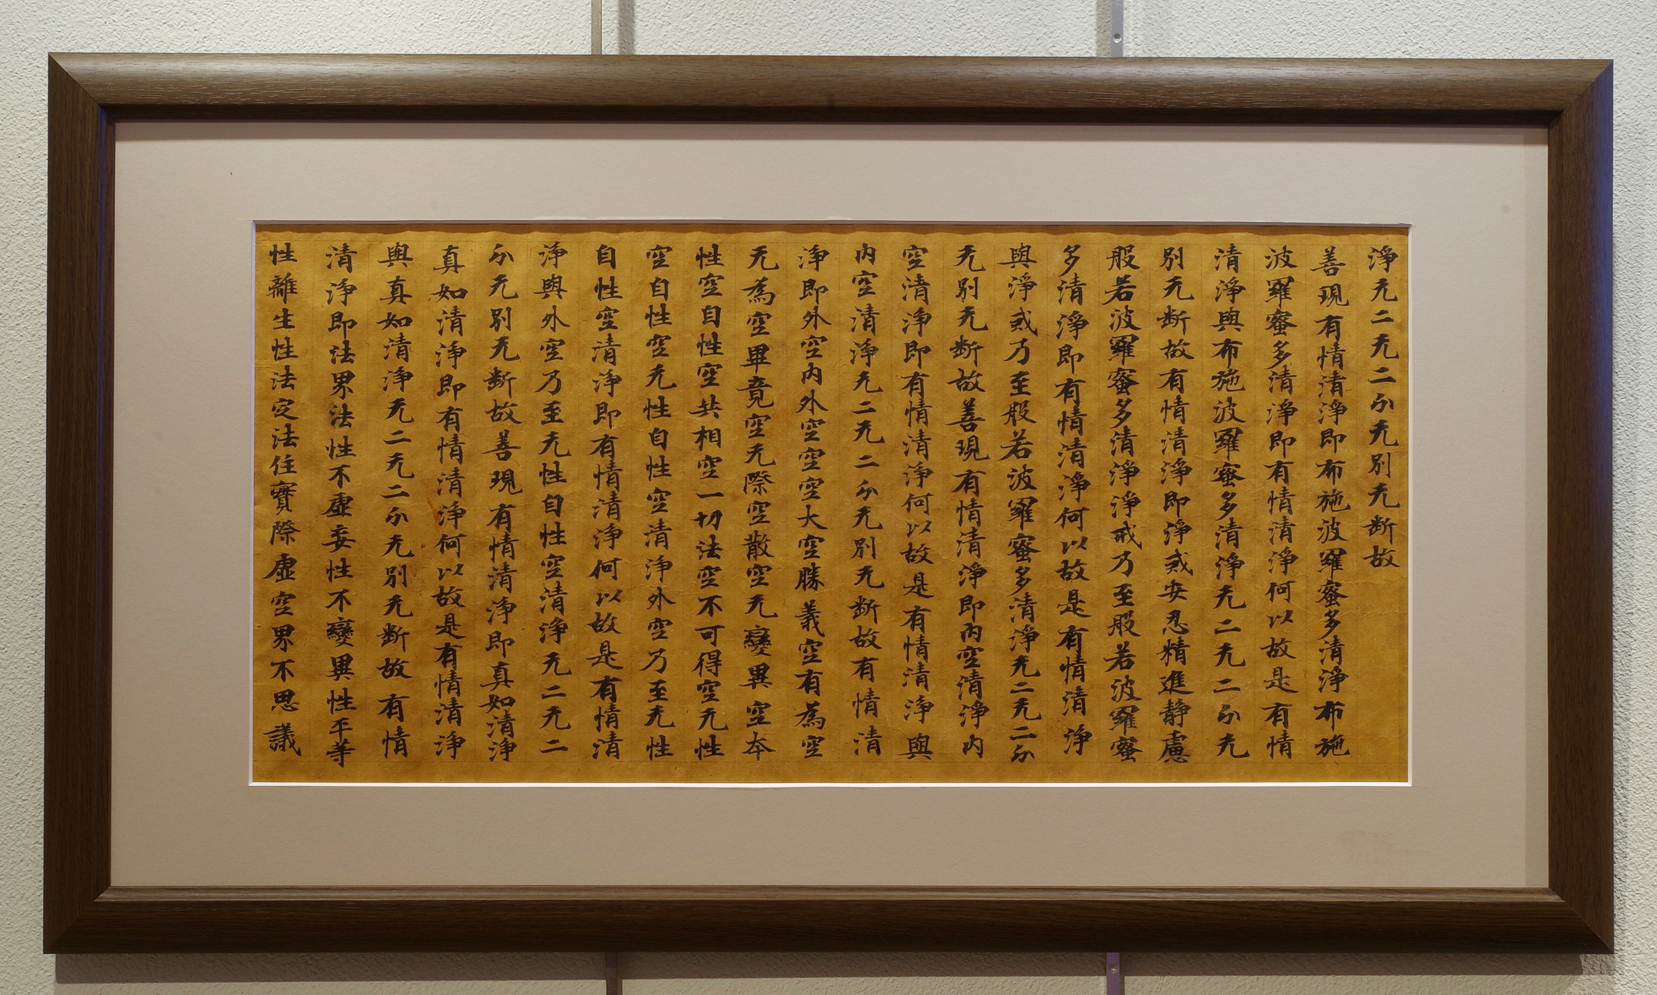 淨无二无二分无別无断故
善現有情清淨即布施波羅蜜多清淨布施
波羅蜜多清淨即有情清淨何以故是有情
清淨與布施波羅蜜多清淨无二无二分无
別无断故有情清淨即淨戒安忍精進静慮
般若波羅蜜多清淨淨戒乃至般若波羅蜜
多清淨即有情清淨何以故是有情清淨
與淨戒乃至般若波羅蜜多清淨无二无二分
无別无断故善現有情清淨即内空清淨内
空清淨即有情清淨何以故是有情清淨與
内空清淨无二无二分无別无断故有情清
淨即外空内外空空空大空勝義空有為空
无為空畢竟空无際空散空无變異空本
性空自性空共相空一切法空不可得空无性
空自性空无性自性空清淨外空乃至无性
自性空清淨即有情清淨何以故是有情清
淨與外空乃至无性自性空清淨无二无二
分无別无断故善現有情清淨即真如清淨
真如清淨即有情清淨何以故是有情清淨
與真如清淨无二无二分无別无断故有情
清淨即法界法性不虚妄性不變異性平等
性離生性法定法住實際虚空界不思議